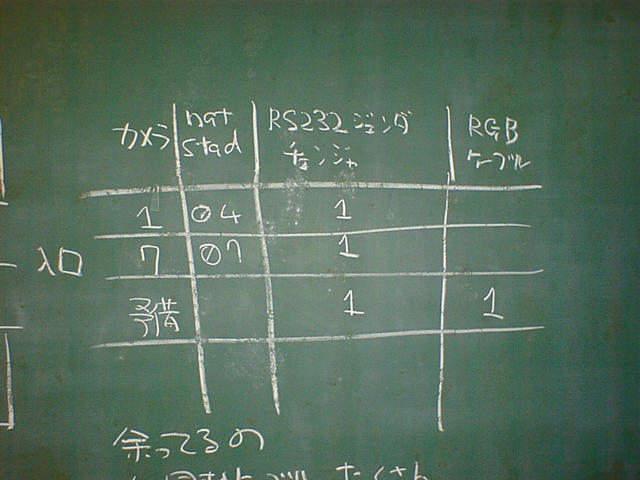 カメラ nat stad RS232ジェンダ チェンジャ RGB ケーブル
1 04 1
7 07 1
予備 1 1
入口
余ってるの
たくさん